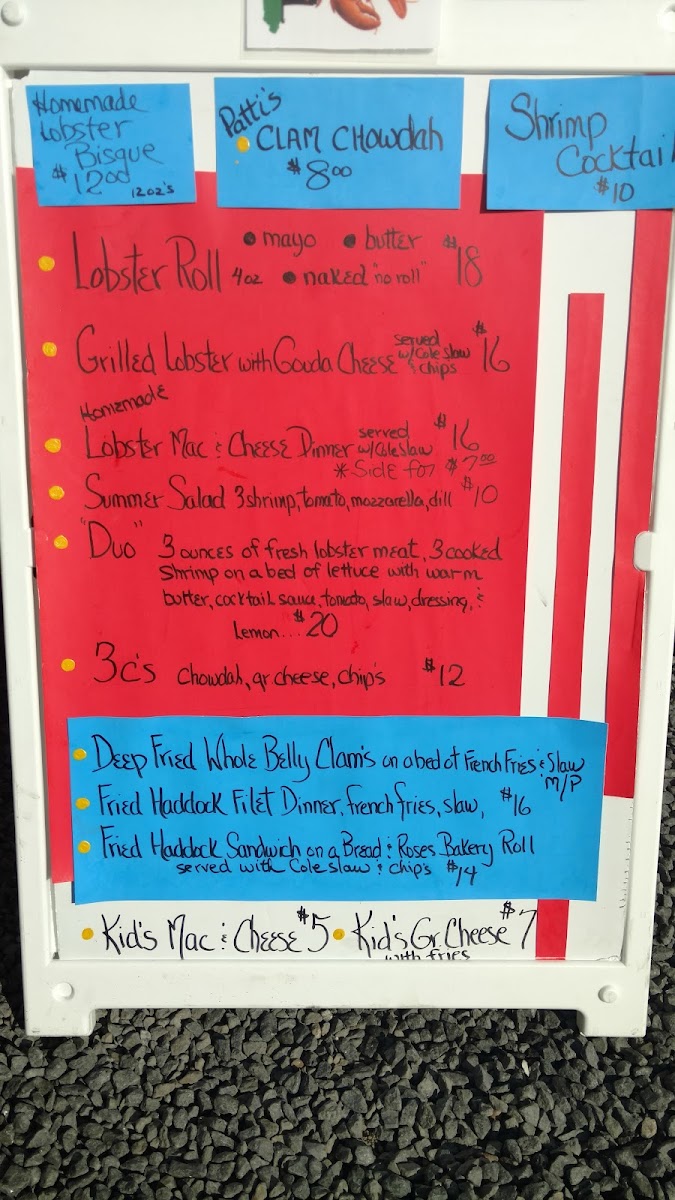 Homemade
Lobster
Bisque
$12.00 12oz's
Patti's
CLAM CHOWDAH
$8.00
Shrimp
Cocktail
$10
Lobster Roll 4oz • mayo • butter $18
• naked "no roll"
Grilled Lobster with Gouda Cheese served w/Cole Slaw & chips $16
Homemade
Lobster Mac & Cheese Dinner served w/Coleslaw $16
*Side for $7.00
Summer Salad 3 shrimp, tomato, mozzarella, dill $10
"Duo" 3 ounces of fresh lobster meat, 3 cooked
Shrimp on a bed of lettuce with warm
butter, cocktail sauce, tomato, slaw, dressing, &
Lemon... $20
3c's chowdah, gr cheese, chip's $12
Deep Fried Whole Belly Clam's on a bed of French Fries & Slaw
M/P
Fried Haddock Filet Dinner, french fries, slaw, $16
Fried Haddock Sandwich on a Bread & Roses Bakery Roll
served with Cole slaw & chip's $14
Kid's Mac & Cheese $5 • Kid's Gr. Cheese $7
with fries